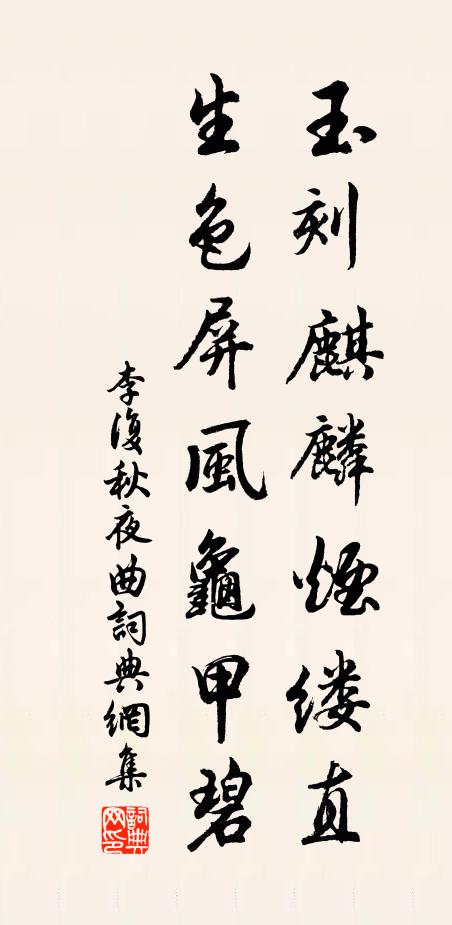 玉刻麒麟煙缕直
生色屏風龜甲碧
李復秋夜曲詞典網集
詞典網印